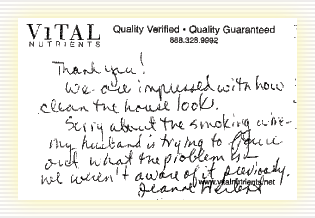 VITAL
NUTRIENTS
Quality Verified • Quality Guaranteed
888.328.9992
Thank you!
We are impressed with how
clean the house look.
Sorry about the smoking wire-
my husband is trying to figure
out what the problem is-
we weren't aware of it previously.
www.vitalnutrients.net
Jeanne